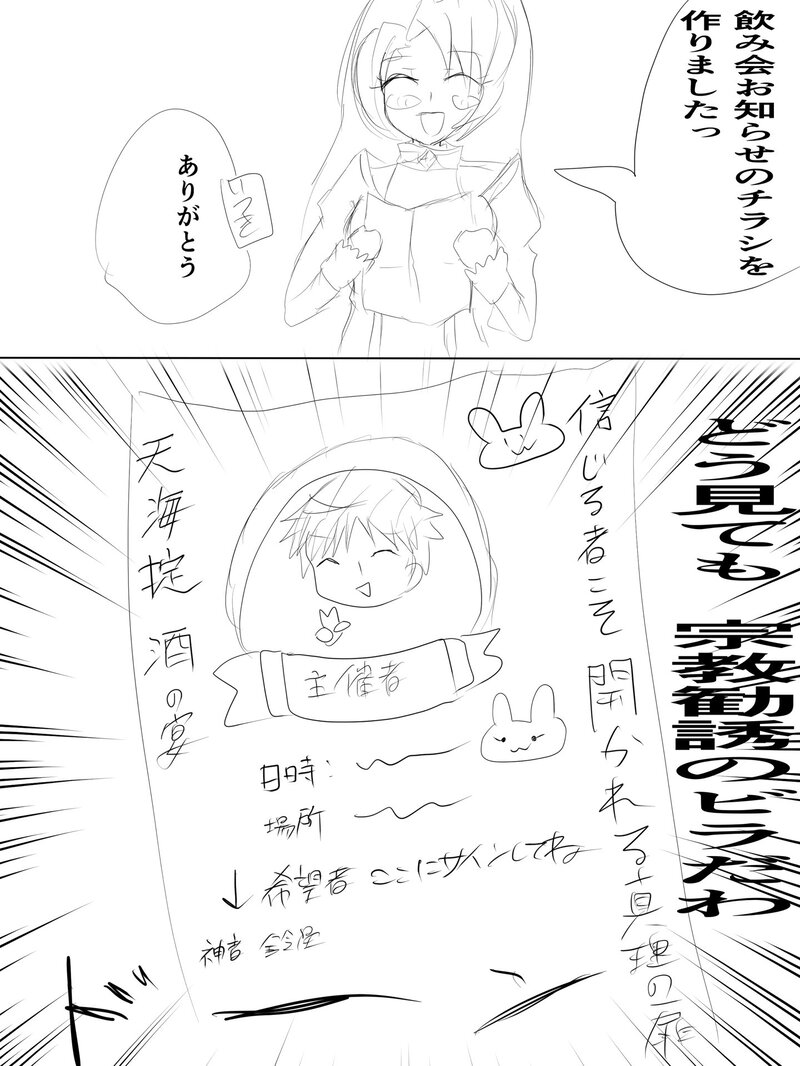 飲み会お知らせのチラシを
作りましたっ
いつき
ありがとう
どう見ても 宗教勧誘のビラだわ
信じる者こそ 開かれる真理の扉
天海掟 酒の宴
主催者
日時:
場所
↓希望者 ここにサインしてね
神者 鈴屋
ドーン